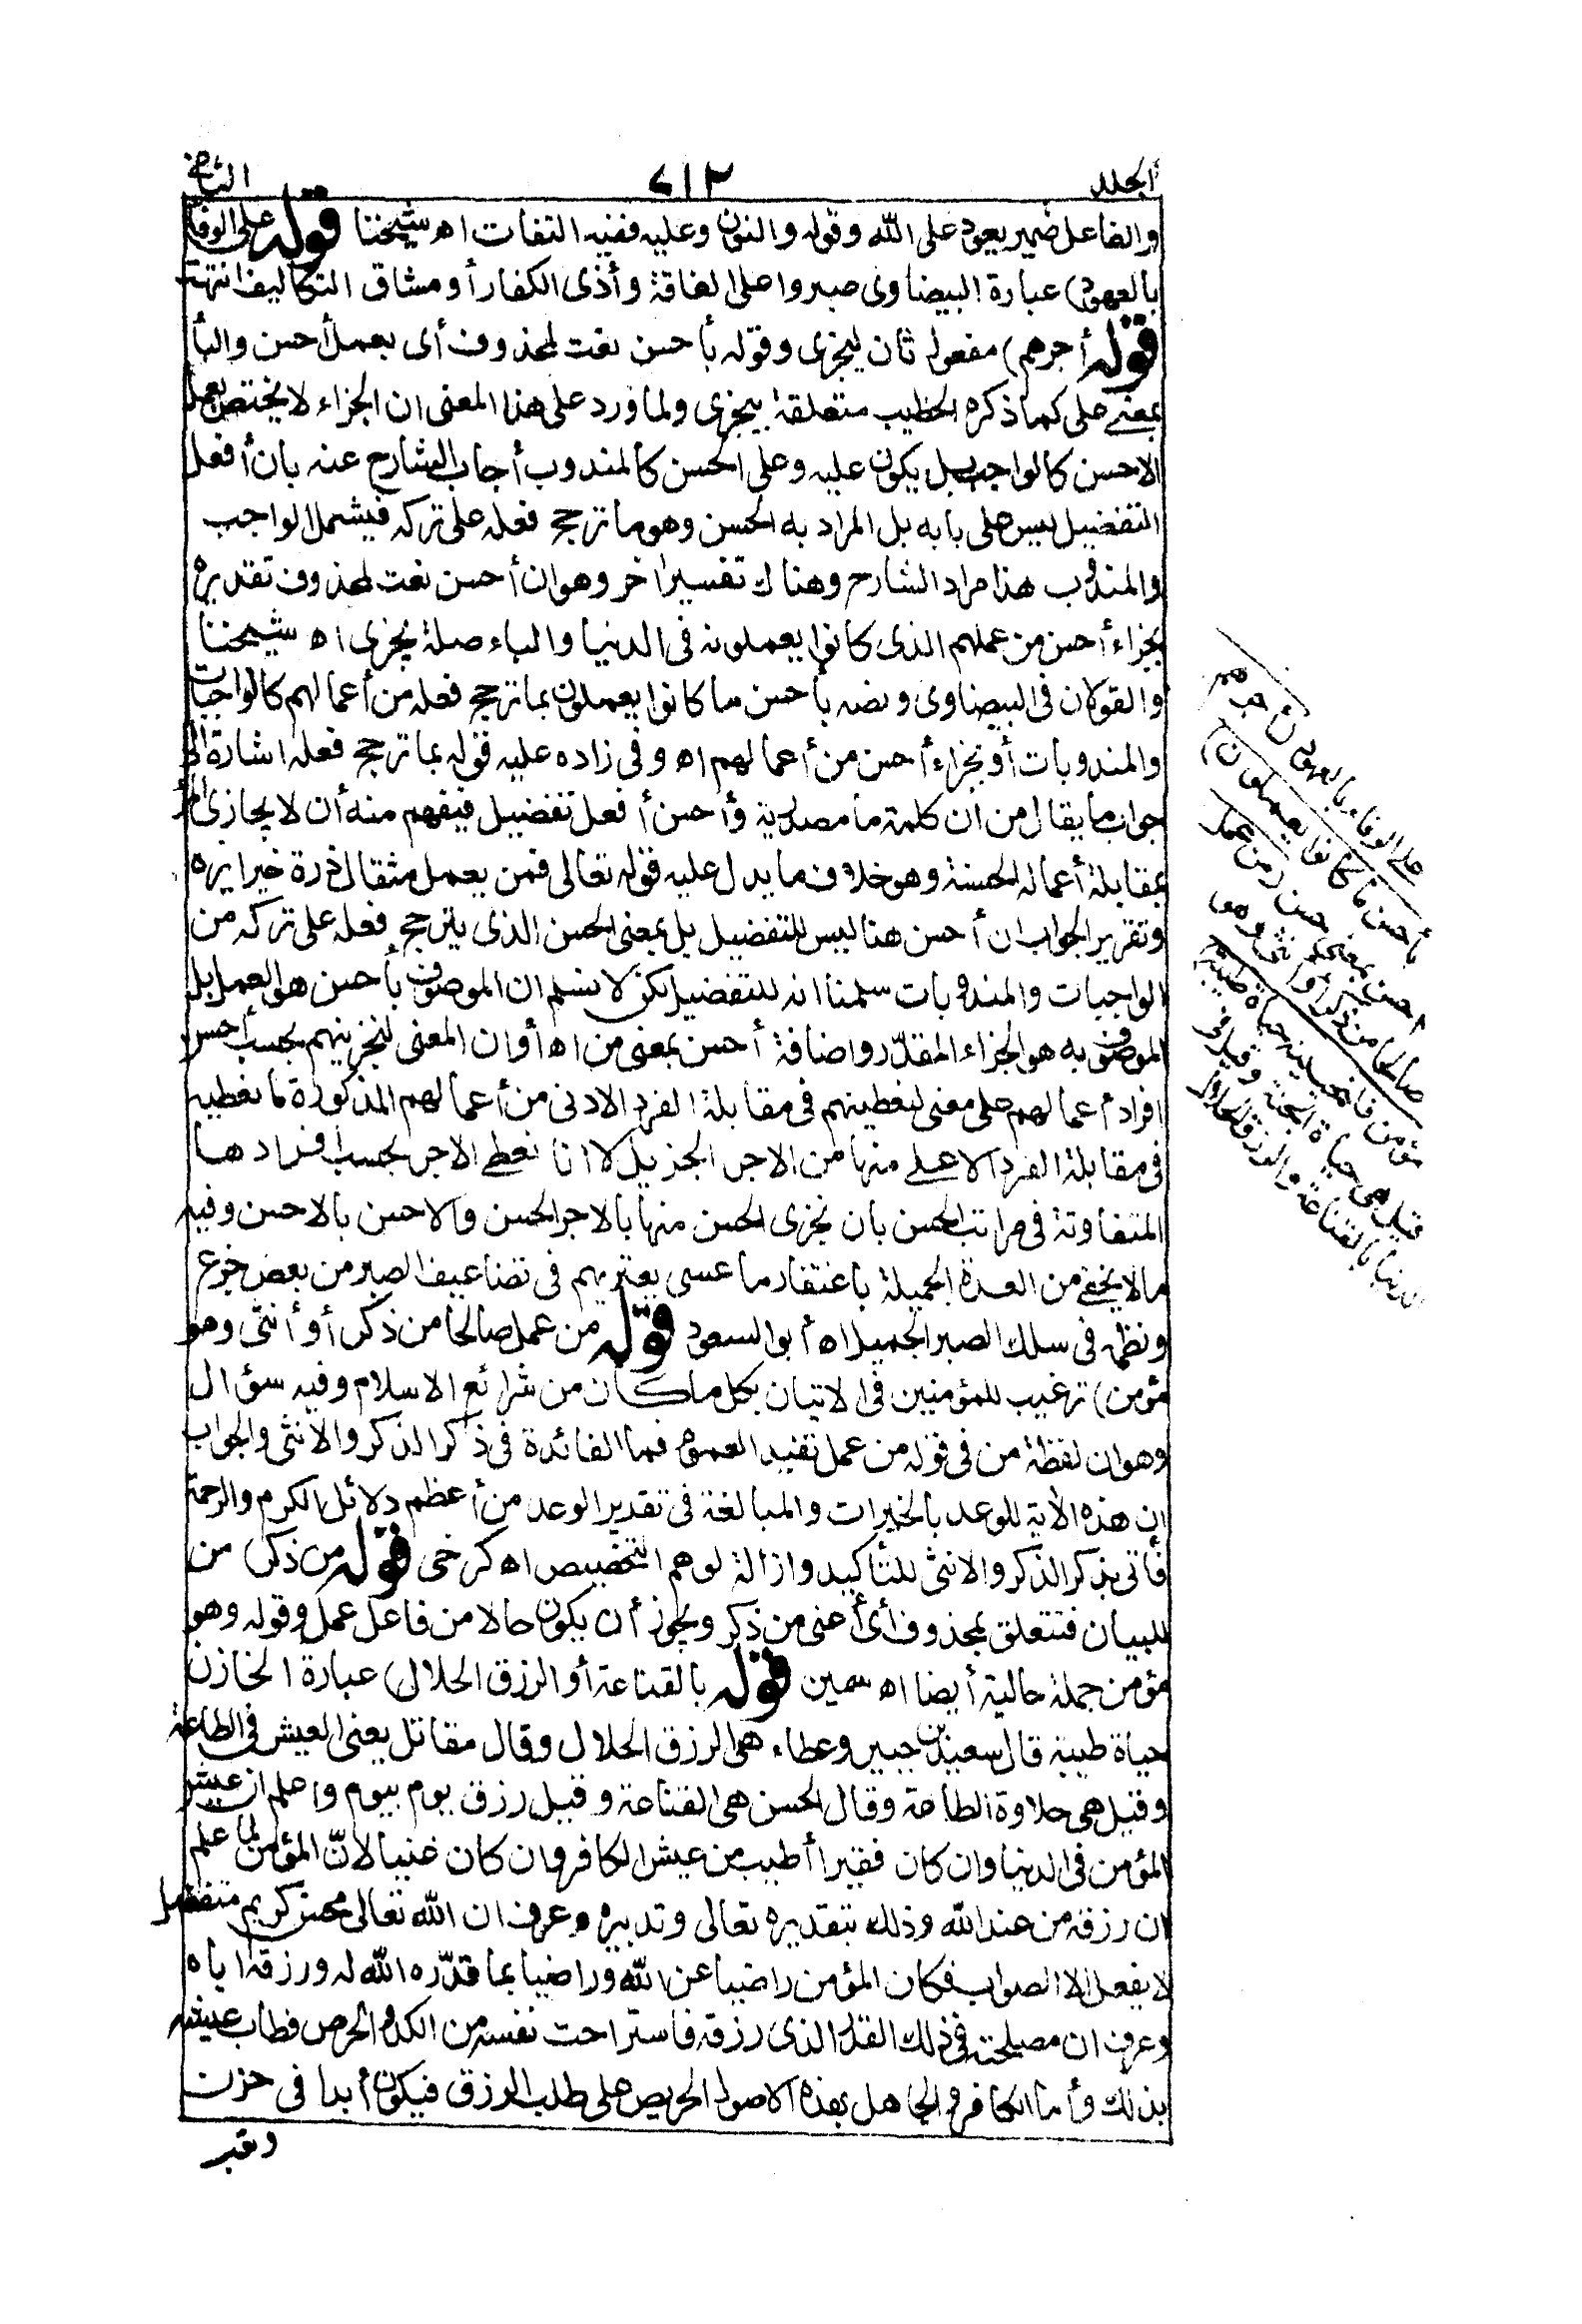 الجلد ٦١٢ الثاني
والفاعل ضمير يعود على الله وقوله والنون وعليه ففيه التفات اه شيخنا قوله على الوفاء
بالعهود) عبارة البيضاوى صبروا على الفاقة وأذى الكفار أو مشاق التكاليف انتهت
قوله أجرهم) مفعول ثان ليجزى وقوله بأحسن نعت لمحذوف أى بعمل أحسن والبأ
بمعنى على كما ذكره الخطيب متعلقة بيجزى ولما ورد على هذا المعنى ان الجزاء لا يختص بعمل
الاحسن كالواجب بل يكون عليه وعلى الحسن كالمندوب أجاب الشارح عنه بان أفعل
التفضيل ليس على بابه بل المراد به الحسن وهو ما ترجح فعله على تركه فيشمل الواجب
والمندوب هذا مراد الشارح وهناك تفسير اخر وهو ان أحسن نعت لمحذوف تقديره
بجزاء أحسن من عملهم الذى كانوا يعملونه فى الدنيا والباء صلة يجزى اه شيخنا
والقولان فى البيضاوى ونصه بأحسن ما كانوا يعملون بما ترجح فعله من أعمالهم كالواجبات
والمندوبات أو بجزاء أحسن من أعمالهم اه وفى زاده عليه قوله بما ترجح فعله اشارة الى
جواب ما يقال من ان كلمة ما مصدرية وأحسن أفعل تفضيل فيفهم منه أن لا يجازى المرأ
بمقابلة أعماله الحسنة وهو خلاف ما يدل عليه قوله تعالى فمن يعمل مثقال ذرة خيرا يره
وتقرير الجواب ان أحسن هنا ليس للتفضيل بل بمعنى الحسن الذى يترجح فعله على تركه من
الواجبات والمندوبات سلمنا انه للتفضيل لكن لا نسلم ان الموصوف بأحسن هو العمل بل
الموصوف به هو الجزاء المقدّر واضافة أحسن بمعنى من اه أو ان المعنى لنجزينهم بحسب أحسن
افراد أعمالهم على معنى لنعطينهم فى مقابلة الفرد الادنى من أعمالهم المذكورة ما نعطيه
فى مقابلة الفرد الاعلى منها من الاجر الجزيل لا انا نعطى الاجر بحسب افرادها
المتفاوتة فى مراتب الحسن بان نجزى الحسن منها بالاجر الحسن والاحسن بالاحسن وفيه
ما لا يخفى من العدة الجميلة باغتفار ما عسى يعتريهم فى تضاعيف الصبر من بعض جزع
ونظمه فى سلك الصبر الجميل اه أبو السعود قوله من عمل صالحا من ذكر أو أنثى وهو
مؤمن) ترغيب للمؤمنين فى الاتيان بكل ما كان من شرائع الاسلام وفيه سؤال
وهو ان لفظة من فى قوله من عمل تفيد العموم فما الفائدة فى ذكر الذكر والأنثى والجواب
ان هذه الأية للوعد بالخيرات والمبالغة فى تقدير الوعد من أعظم دلائل الكرم والرحمة
فأتى بذكر الذكر والانثى للتأكيد وازالة لوهم التخصيص اه كرخى قوله من ذكر) من
للبيان فتتعلق بمحذوف أى أعنى من ذكر ويجوز أن يكون حالا من فاعل عمل وقوله وهو
مؤمن جملة حالية أيضا اه سمين قوله بالقناعة أو الرزق الحلال) عبارة الخازن
حياة طيبة قال سعيد بن جبير وعطاء هى الرزق الحلال وقال مقاتل يعنى العيش فى الطاعة
وقيل هى حلاوة الطاعة وقال الحسن هى القناعة وقيل رزق يوم بيوم واعلم ان عيش
المؤمن فى الدنيا وان كان فقيرا أطيب من عيش الكافر وان كان غنيا لانّ المؤمن لما علم
ان رزقه من عند الله وذلك بتقديره تعالى وتدبيره وعرف ان الله تعالى محسن كريم متفضل
لا يفعل الا الصواب فكان المؤمن راضيا عن الله وراضيا بما قدّره الله له ورزقه اياه
وعرف ان مصلحته فى ذلك القدر الذى رزقه فاستراحت نفسه من الكد والحرص فطاب عيشه
بذلك وأما الكافر والجاهل بهذه الاصول الحريص على طلب الرزق فيكون أبدا فى حزن
وتعب
على الوفاء بالعهود (أجرهم
بأحسن ما كانوا يعملون)
أحسن بمعنى حسن (من عمل
صالحا من ذكر أو أنثى وهو
مؤمن فلنحيينه حياة طيبة)
قيل هى حياة الجنة وقيل فى
الدنيا بالقناعة والرزق الحلال